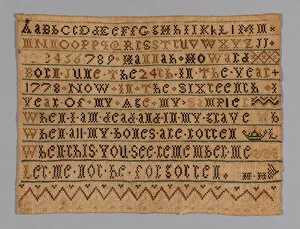 AabbCcDdEeFfGgHhIiKkLlM
NnOoPpQqRrSsTtUVWXYZ
23456789 Hannah Howard
Born June The 24th In The Year
1778 NOW In The Sixteenth
Year Of My Age My Sampler
When I am dead and In My Grave
When all My bones are rotten
When this YOU See remember Me
Let Me Not be for Gotten